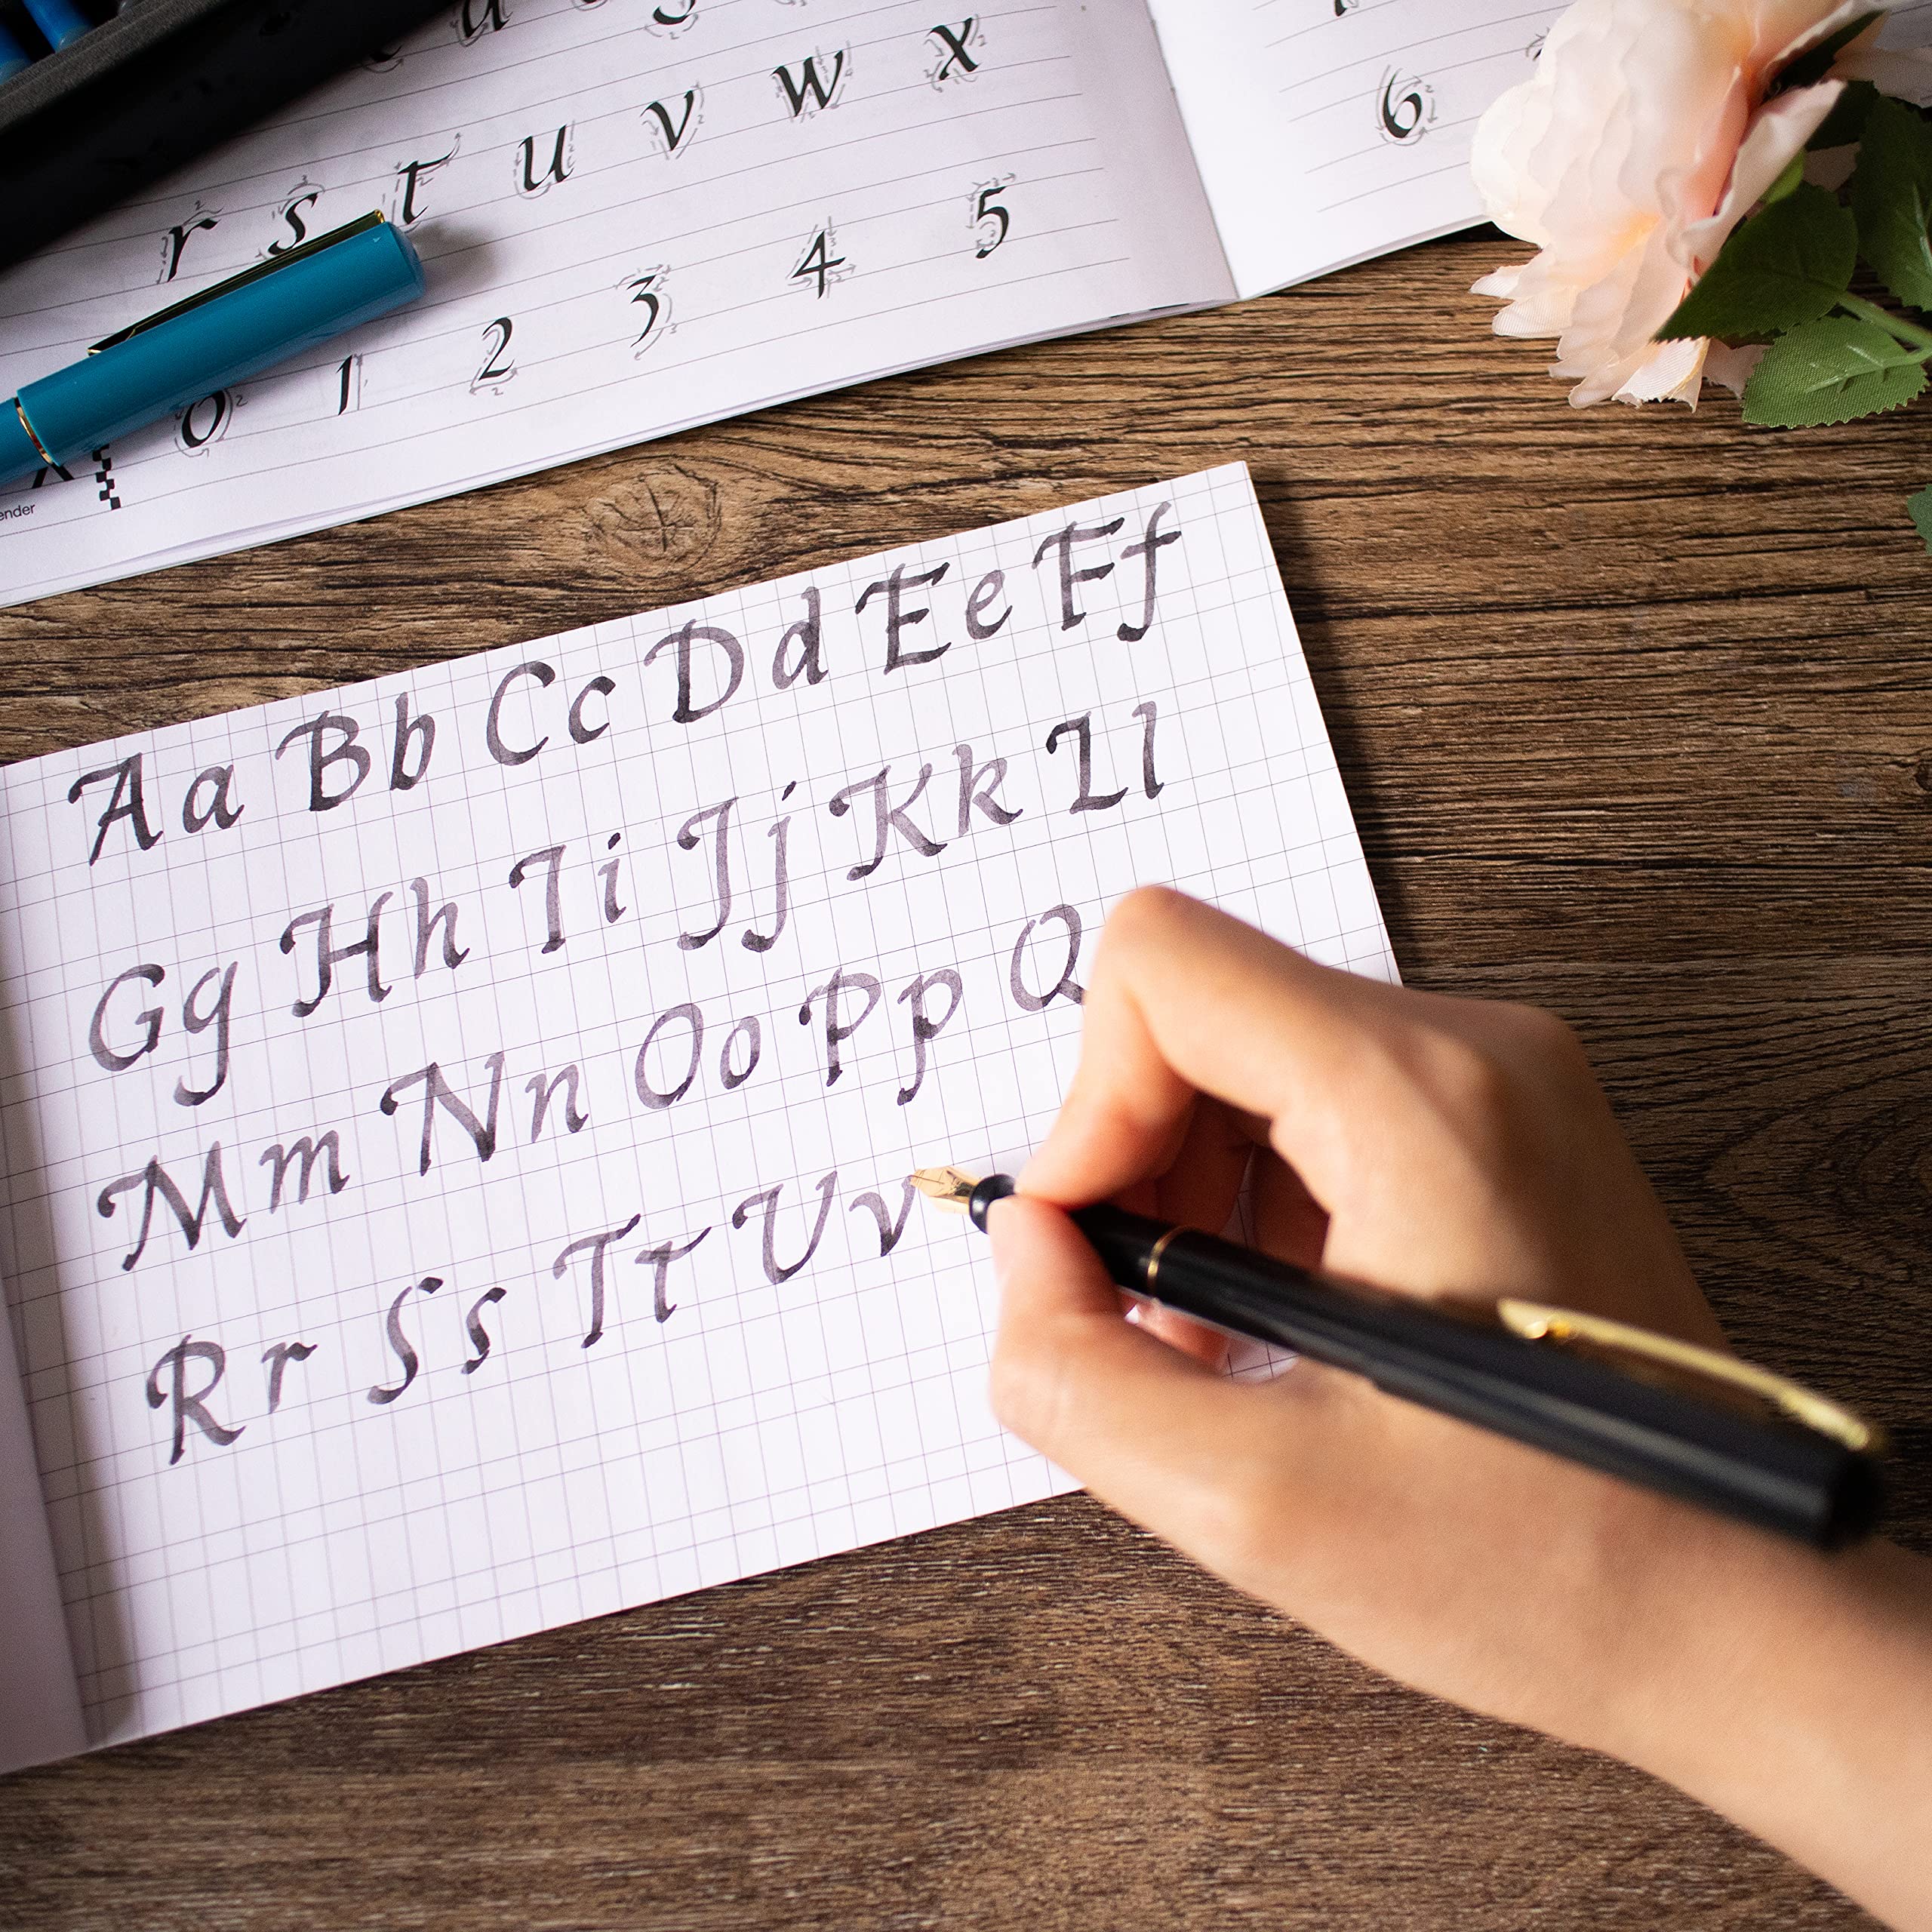 r s t u v w x
0 1 2 3 4 5
6
ender
Aa Bb Cc Dd Ee Ff
Gg Hh Ii Jj Kk Ll
Mm Nn Oo Pp Q
Rr Ss Tt Uv